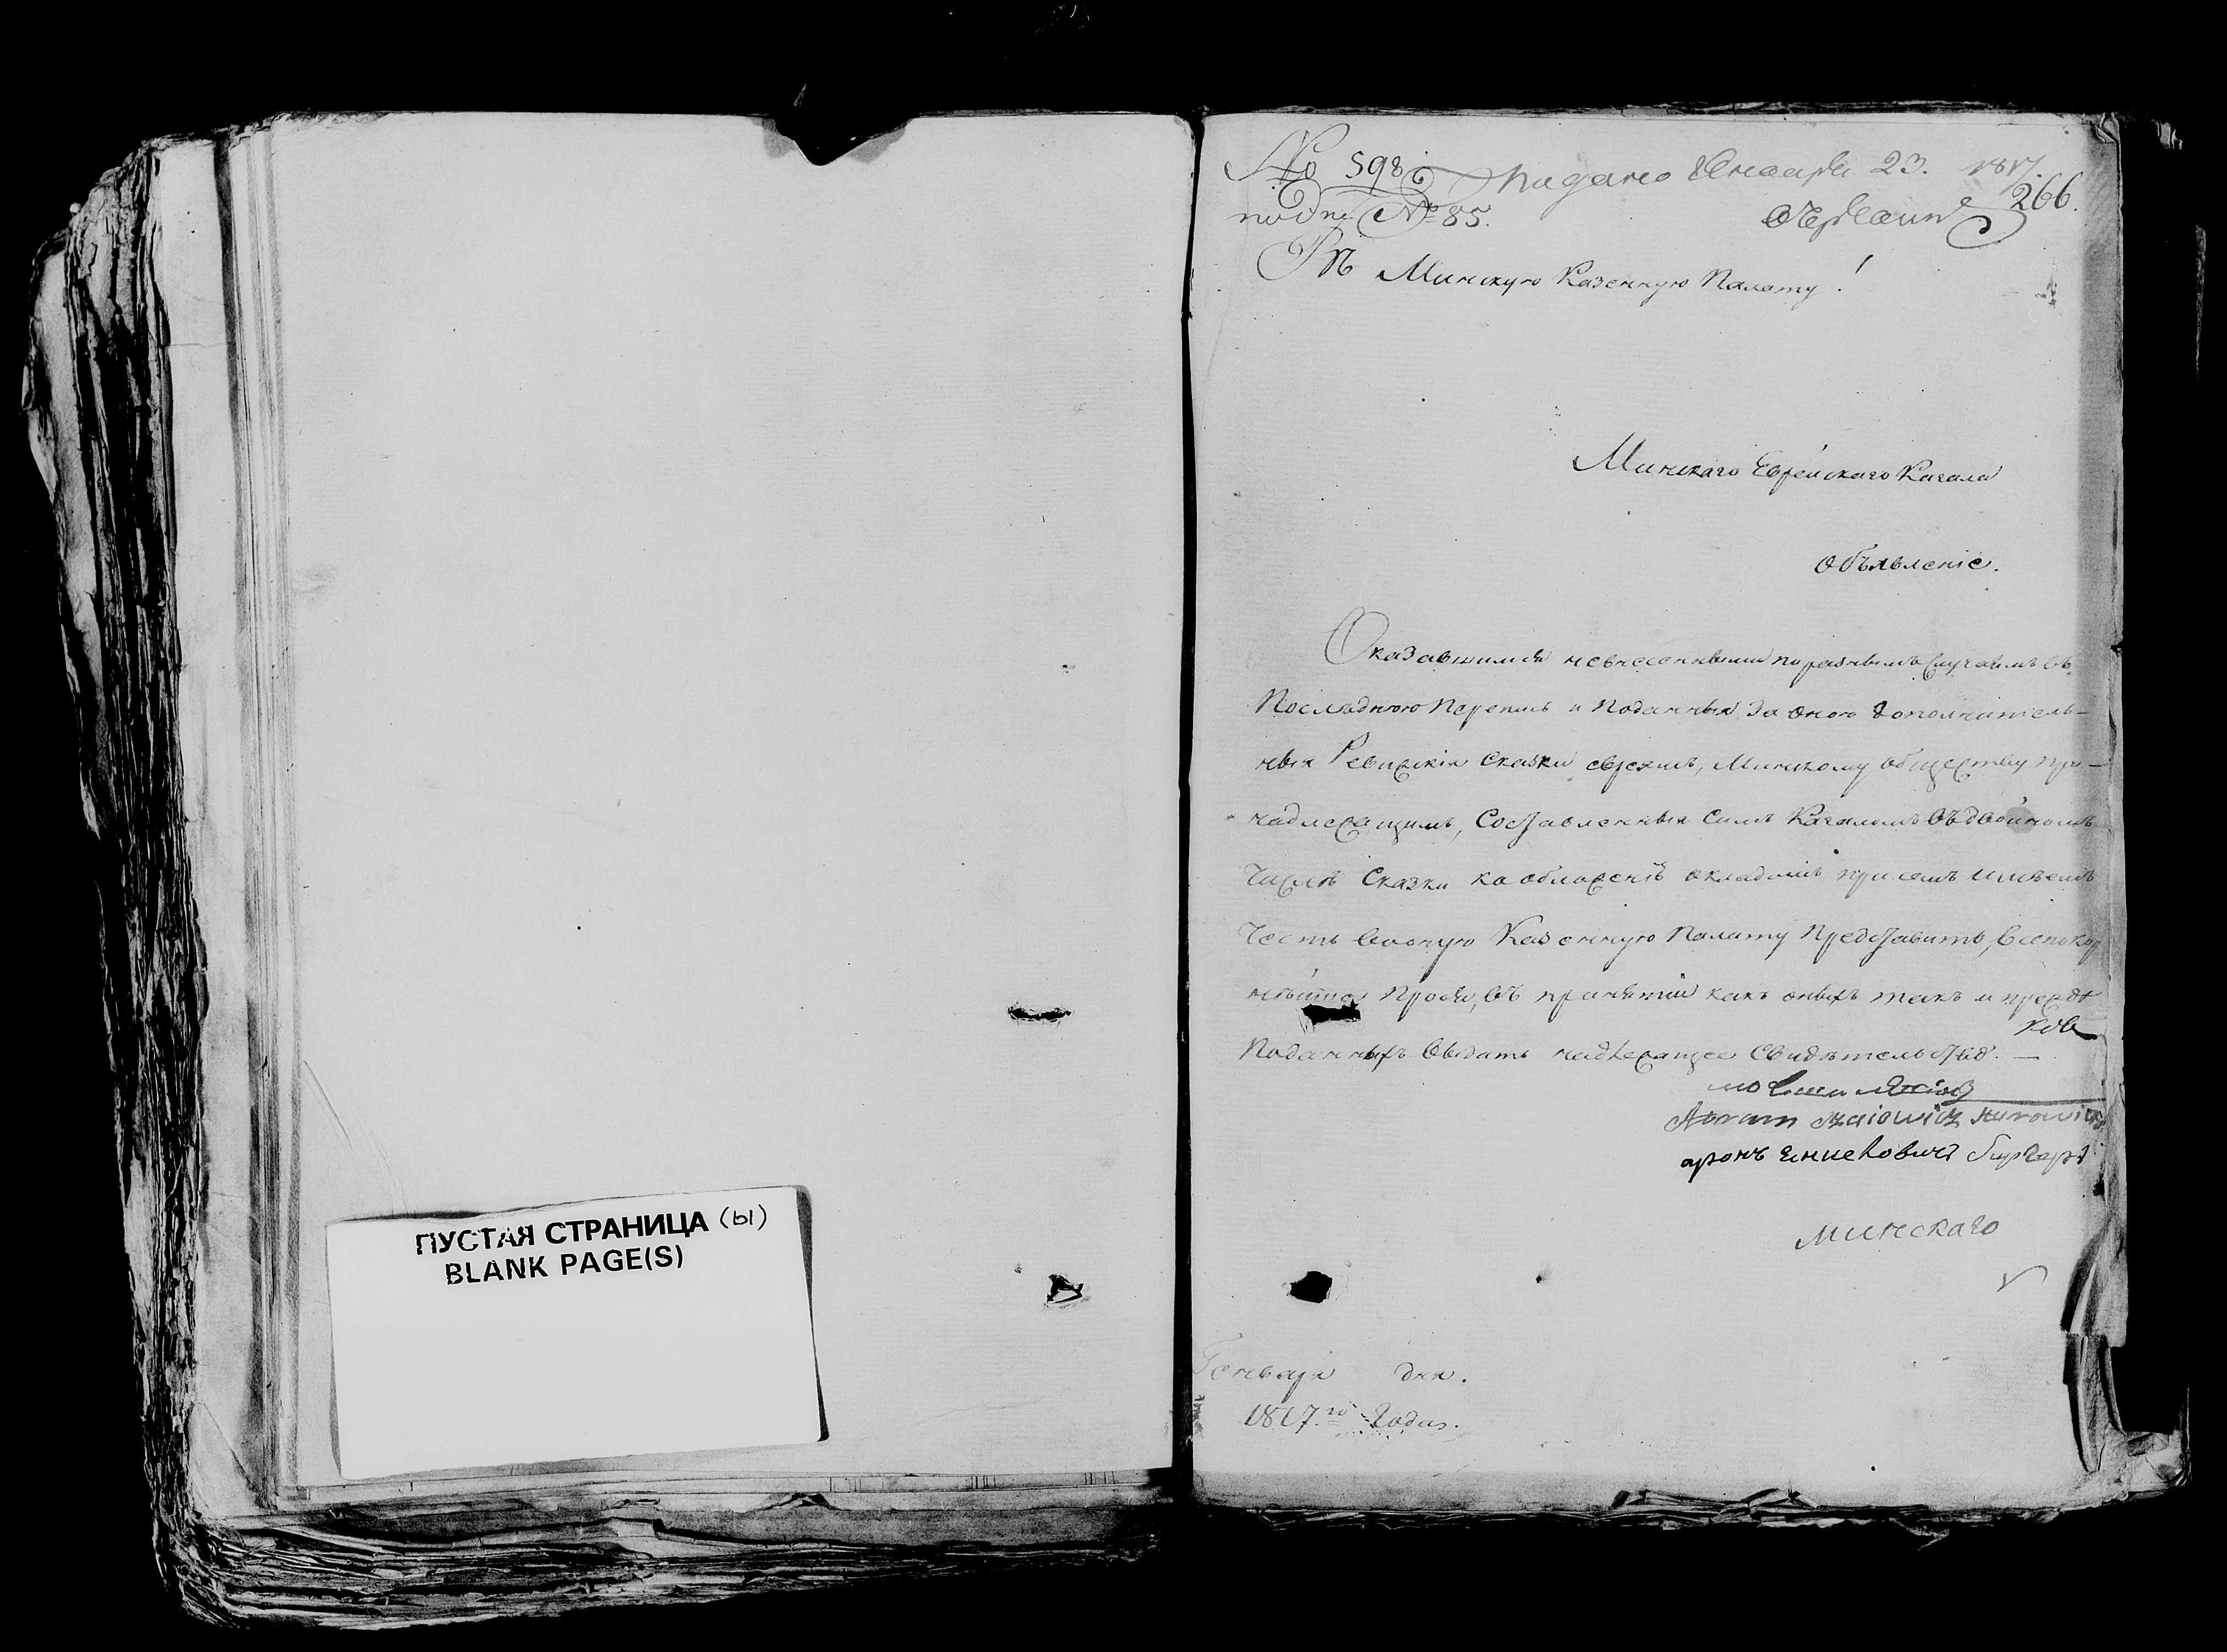 ПУСТАЯ СТРАНИЦА (ы)
BLANK PAGE(S)
No 598
подано Генваря 23. 1817.
266.
№ 85.
Въ Минскую Казенную Палату!
Минскаго Еврейскаго Кагала
Объявленіе.
Оказавшимся невнесенными по разнымъ случаямъ въ
Последнюю Перепись и Поданныя за оною дополнитель-
ныя Ревизскія Сказки евреямъ, Минскому обществу при-
надлежащимъ, Составленныя Симъ Кагаломъ въ двойномъ
Числѣ Сказки ко обложенію окладомъ при семъ имѣемъ
Честь Въ оную Казенную Палату Представить, Всепокор
нѣйше Прося, въ принятіи какъ оныхъ такъ и прежде
Поданныхъ Выдать надлежащее Свидѣтельство. —
Abram
аронъ
Минскаго
Генваря дня.
1817.го Года.